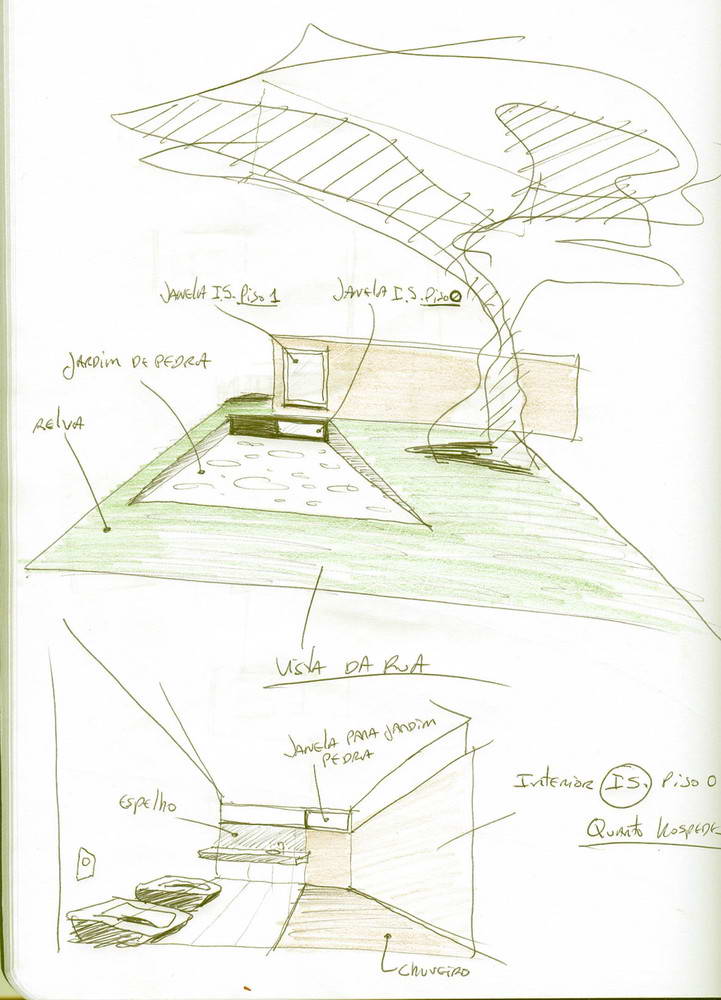 JANELA I.S. Piso 1
JANELA I.S. Piso 0
JARDIM DE PEDRA
RELVA
VISTA DA RUA
JANELA PARA JARDIM
PEDRA
ESPELHO
INTERIOR I.S. Piso 0
QUARTO HOSPEDES
CHUVEIRO